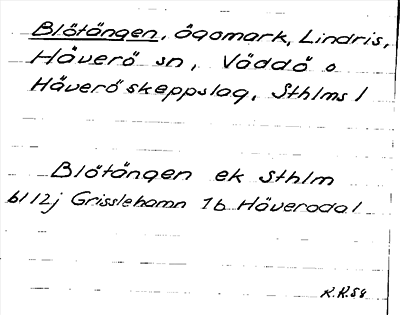 Blötängen, ägomark, Lindris,
Häverö sn, Väddö o
Häverö skeppslag, Sthlms l
Blötängen ek Sthlm
bl 12j Grisslehamn 1b Häverödal
K.K.58